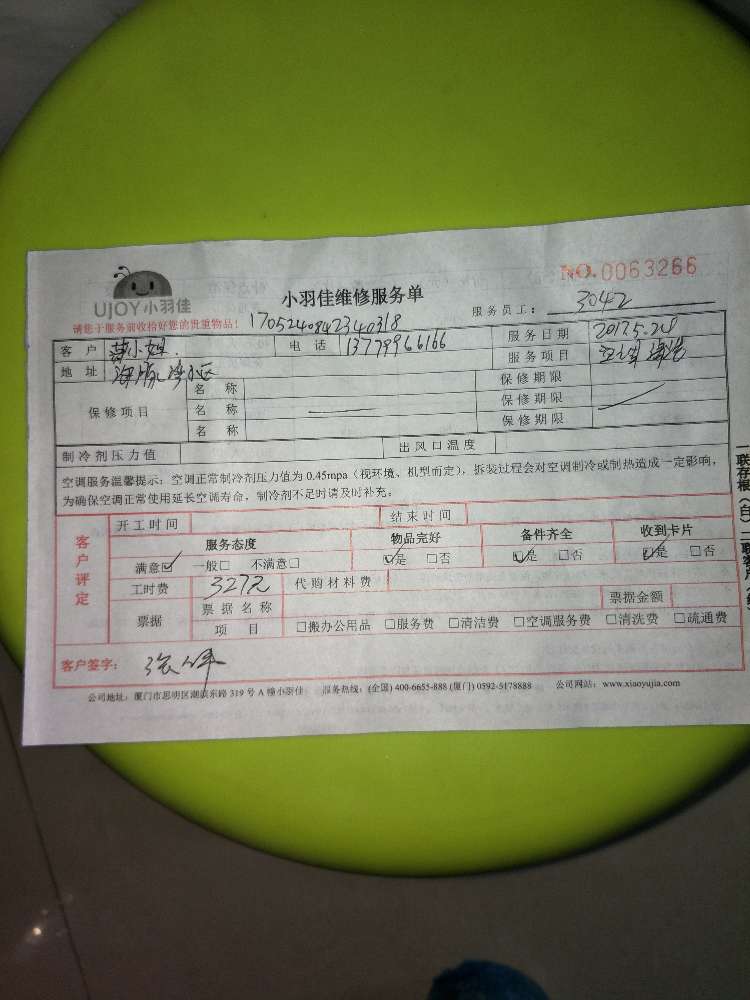 NO.0063266
UJOY小羽佳
小羽佳维修服务单
服务员工： 3042
请您于服务前收拾好您的贵重物品！ 1705240842340318
客户 小姐 电话 13779966166 服务日期 2017.5.28
地址 小区 服务项目 空调清洗
保修项目 名称 保修期限
名称 保修期限
名称 保修期限
制冷剂压力值 出风口温度
空调服务温馨提示：空调正常制冷剂压力值为0.45mpa（视环境、机型而定），拆装过程会对空调制冷或制热造成一定影响，
为确保空调正常使用延长空调寿命，制冷剂不足时请及时补充。
客户评定 开工时间 结束时间
服务态度 物品完好 备件齐全 收到卡片
满意☑ 一般□ 不满意□ ☑是 □否 ☑是 □否 ☑是 □否
工时费 327元 代购材料费
票据 票据名称 票据金额
项目 □搬办公用品 □服务费 □清洁费 □空调服务费 □清洗费 □疏通费
客户签字：
公司地址：厦门市思明区湖滨东路319号A幢小羽佳 服务热线：(全国) 400-6655-888 (厦门) 0592-5178888 公司网站：www.xiaoyujia.com